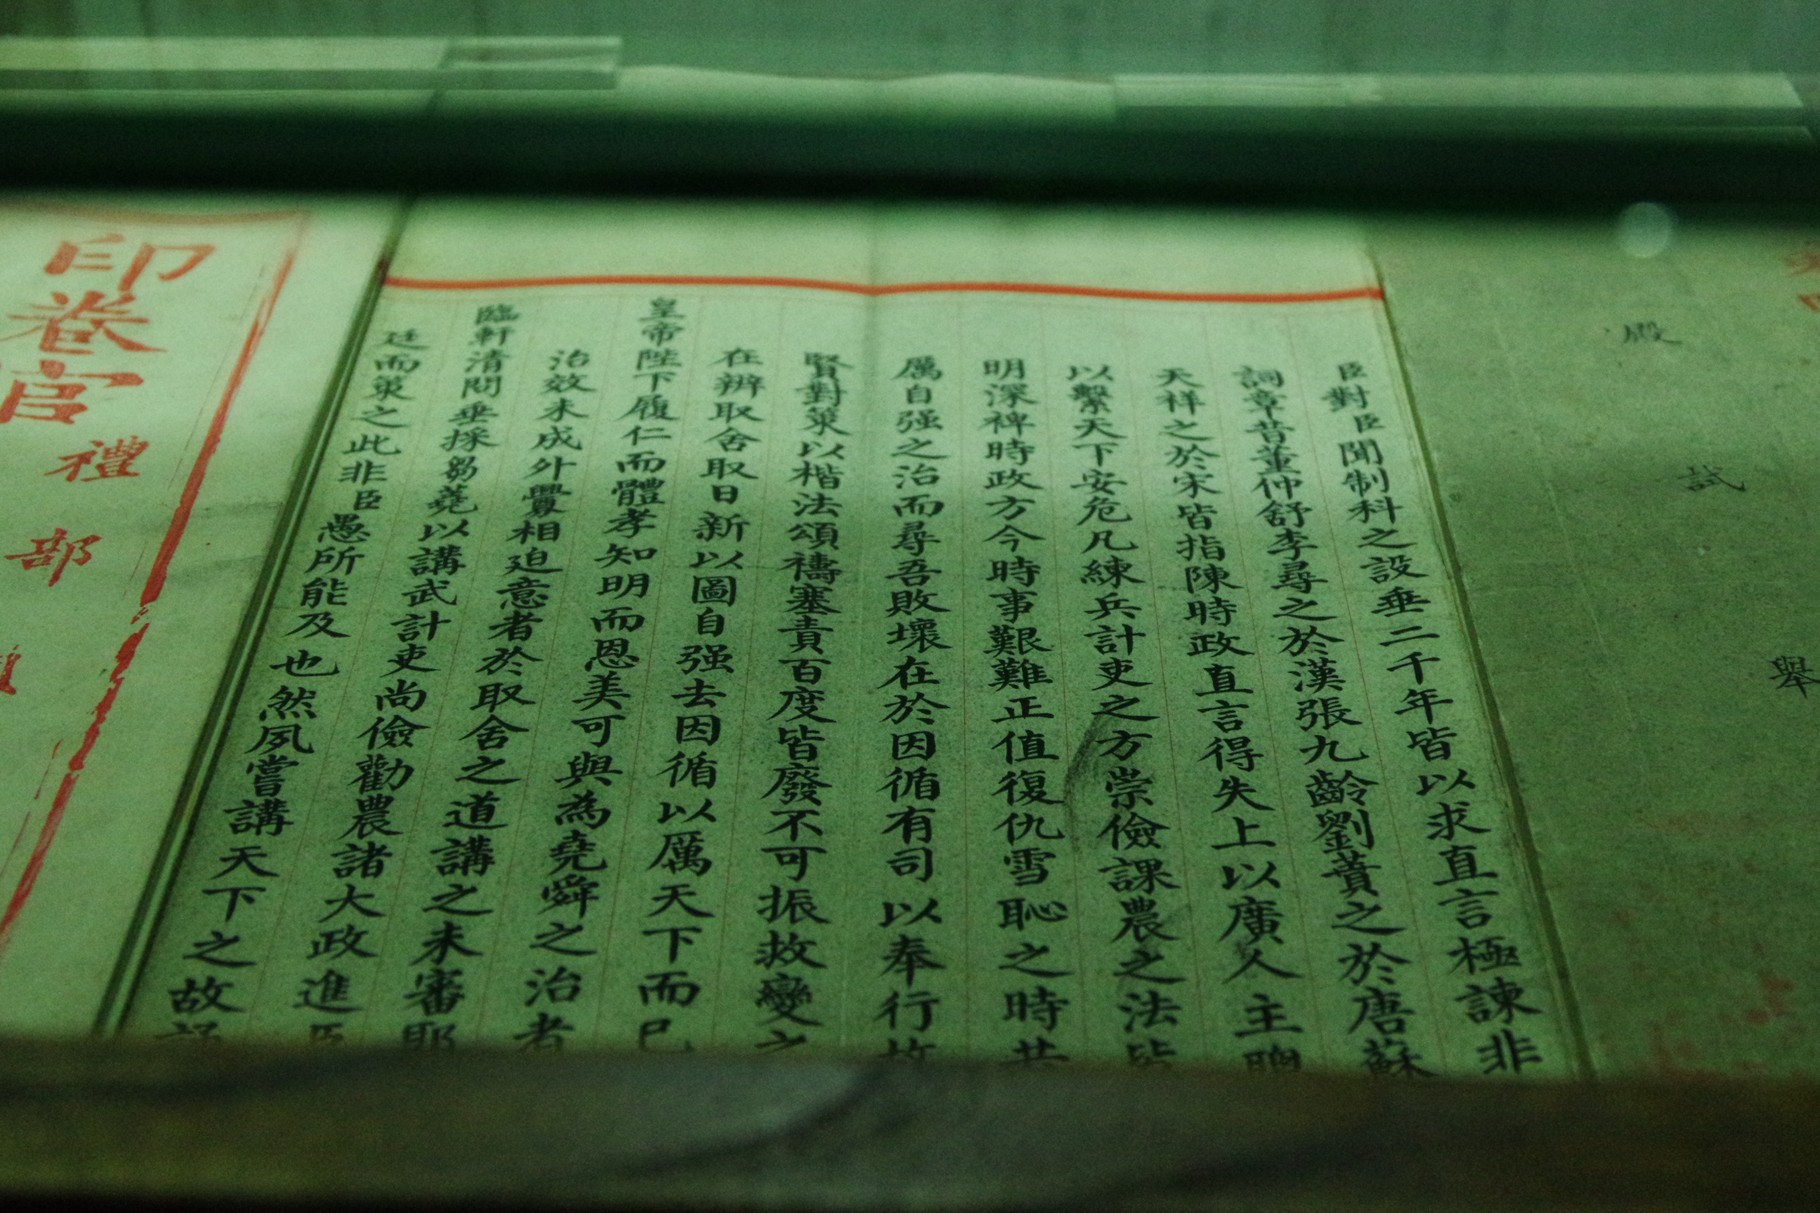 殿
試
舉
臣對臣聞制科之設垂二千年皆以求直言極諫非
詞章昔董仲舒李尋之於漢張九齡劉蕡之於唐蘇
天祥之於宋皆指陳時政直言得失上以廣人主聰
以繫天下安危凡練兵計吏之方崇儉課農之法皆
明深裨時政方今時事艱難正值復仇雪恥之時其
厲自强之治而尋吾敗壞在於因循有司以奉行故
賢對策以楷法頌禱塞責百度皆廢不可振救變之
在辨取舍取日新以圖自强去因循以厲天下而已
皇帝陛下履仁而體孝知明而恩美可與為堯舜之治者
治效未成外釁相迫意者於取舍之道講之未審耶
臨軒清問垂採芻蕘以講武計吏尚儉勸農諸大政進臣
廷而策之此非臣愚所能及也然夙嘗講天下之故
印卷官
禮
部